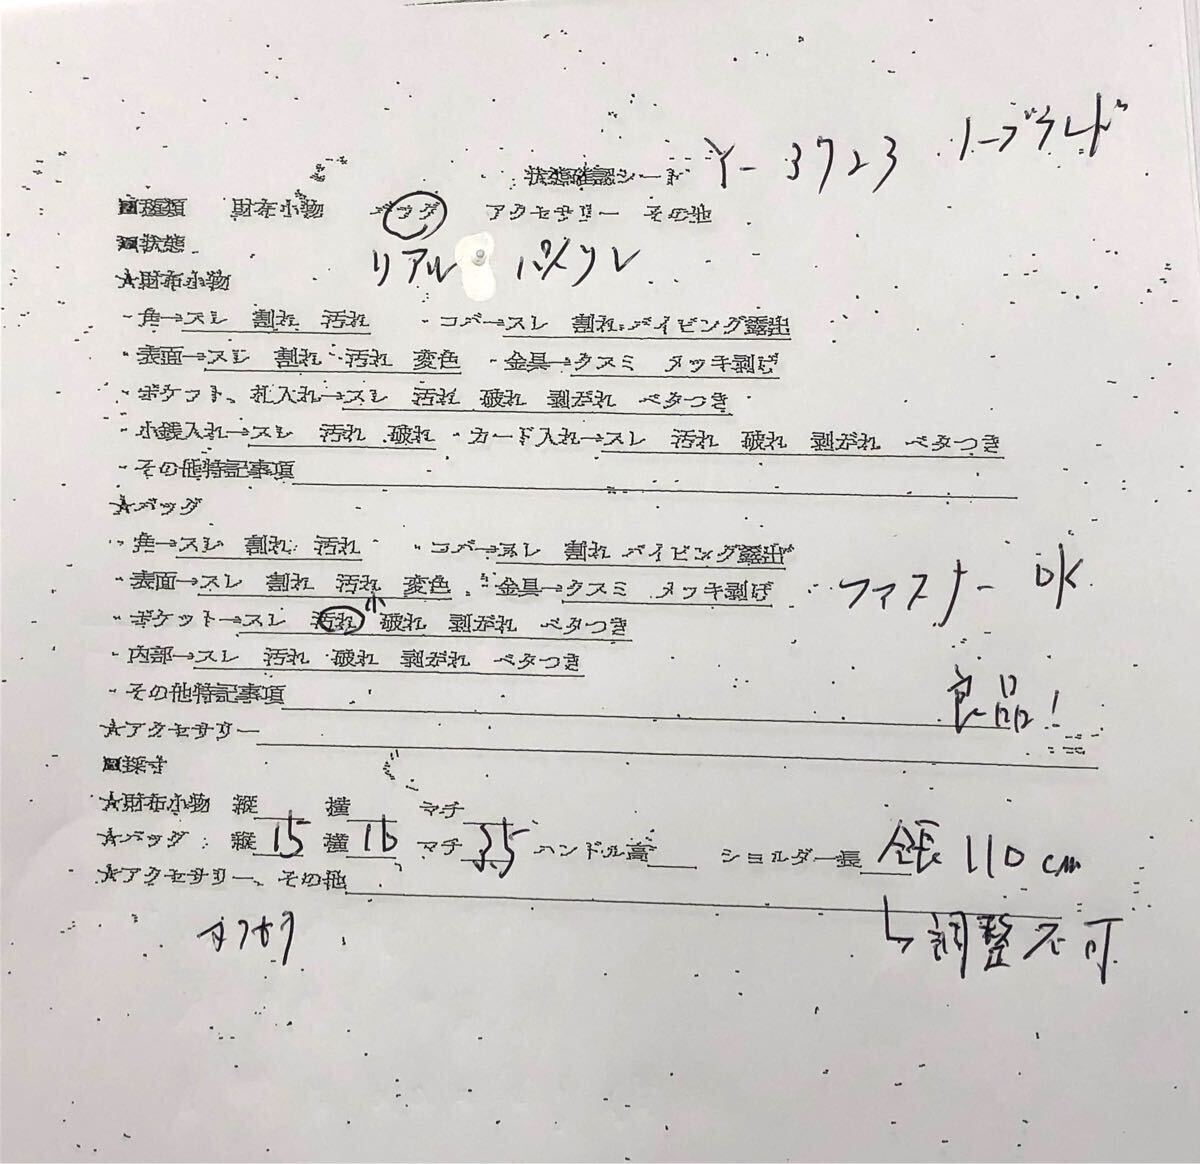 状態確認シート Y-3723 ノーブランド
■種類 財布小物 バッグ アクセサリー その他
■状態 リアル パイソン
★財布小物
・角→スレ 割れ 汚れ ・コバ→スレ 割れ パイピング露出
・表面→スレ 割れ 汚れ 変色 ・金具→クスミ メッキ剥げ
・ポケット、札入れ→スレ 汚れ 破れ 剥がれ ベタつき
・小銭入れ→スレ 汚れ 破れ ・カード入れ→スレ 汚れ 破れ 剥がれ ベタつき
・その他特記事項
★バッグ
・角→スレ 割れ 汚れ ・コバ→スレ 割れ パイピング露出
・表面→スレ 割れ 汚れ 変色 ・金具→クスミ メッキ剥げ ファスナー OK
・ポケット→スレ 汚れ 小 破れ 剥がれ ベタつき
・内部→スレ 汚れ 破れ 剥がれ ベタつき
・その他特記事項 良品!
★アクセサリー
■採寸
★財布小物 縦 横 マチ
★バッグ 縦 15 横 16 マチ 3.5 ハンドル高 ショルダー長 全長 110cm
★アクセサリー、その他
↳調整不可